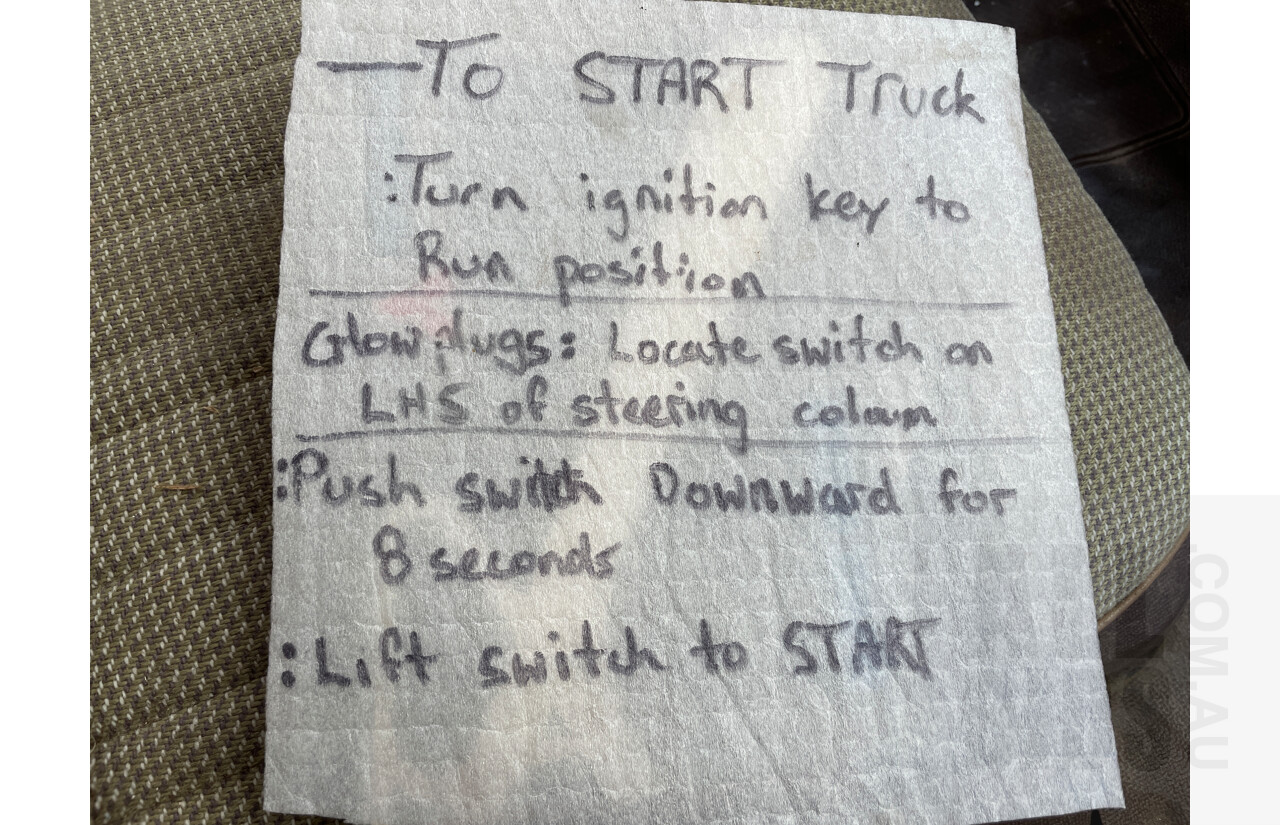 —To START Truck
:Turn ignition key to
Run position
Glowplugs: Locate switch on
LHS of steering coloum
:Push switch Downward for
8 seconds
:Lift switch to START
.COM.AU